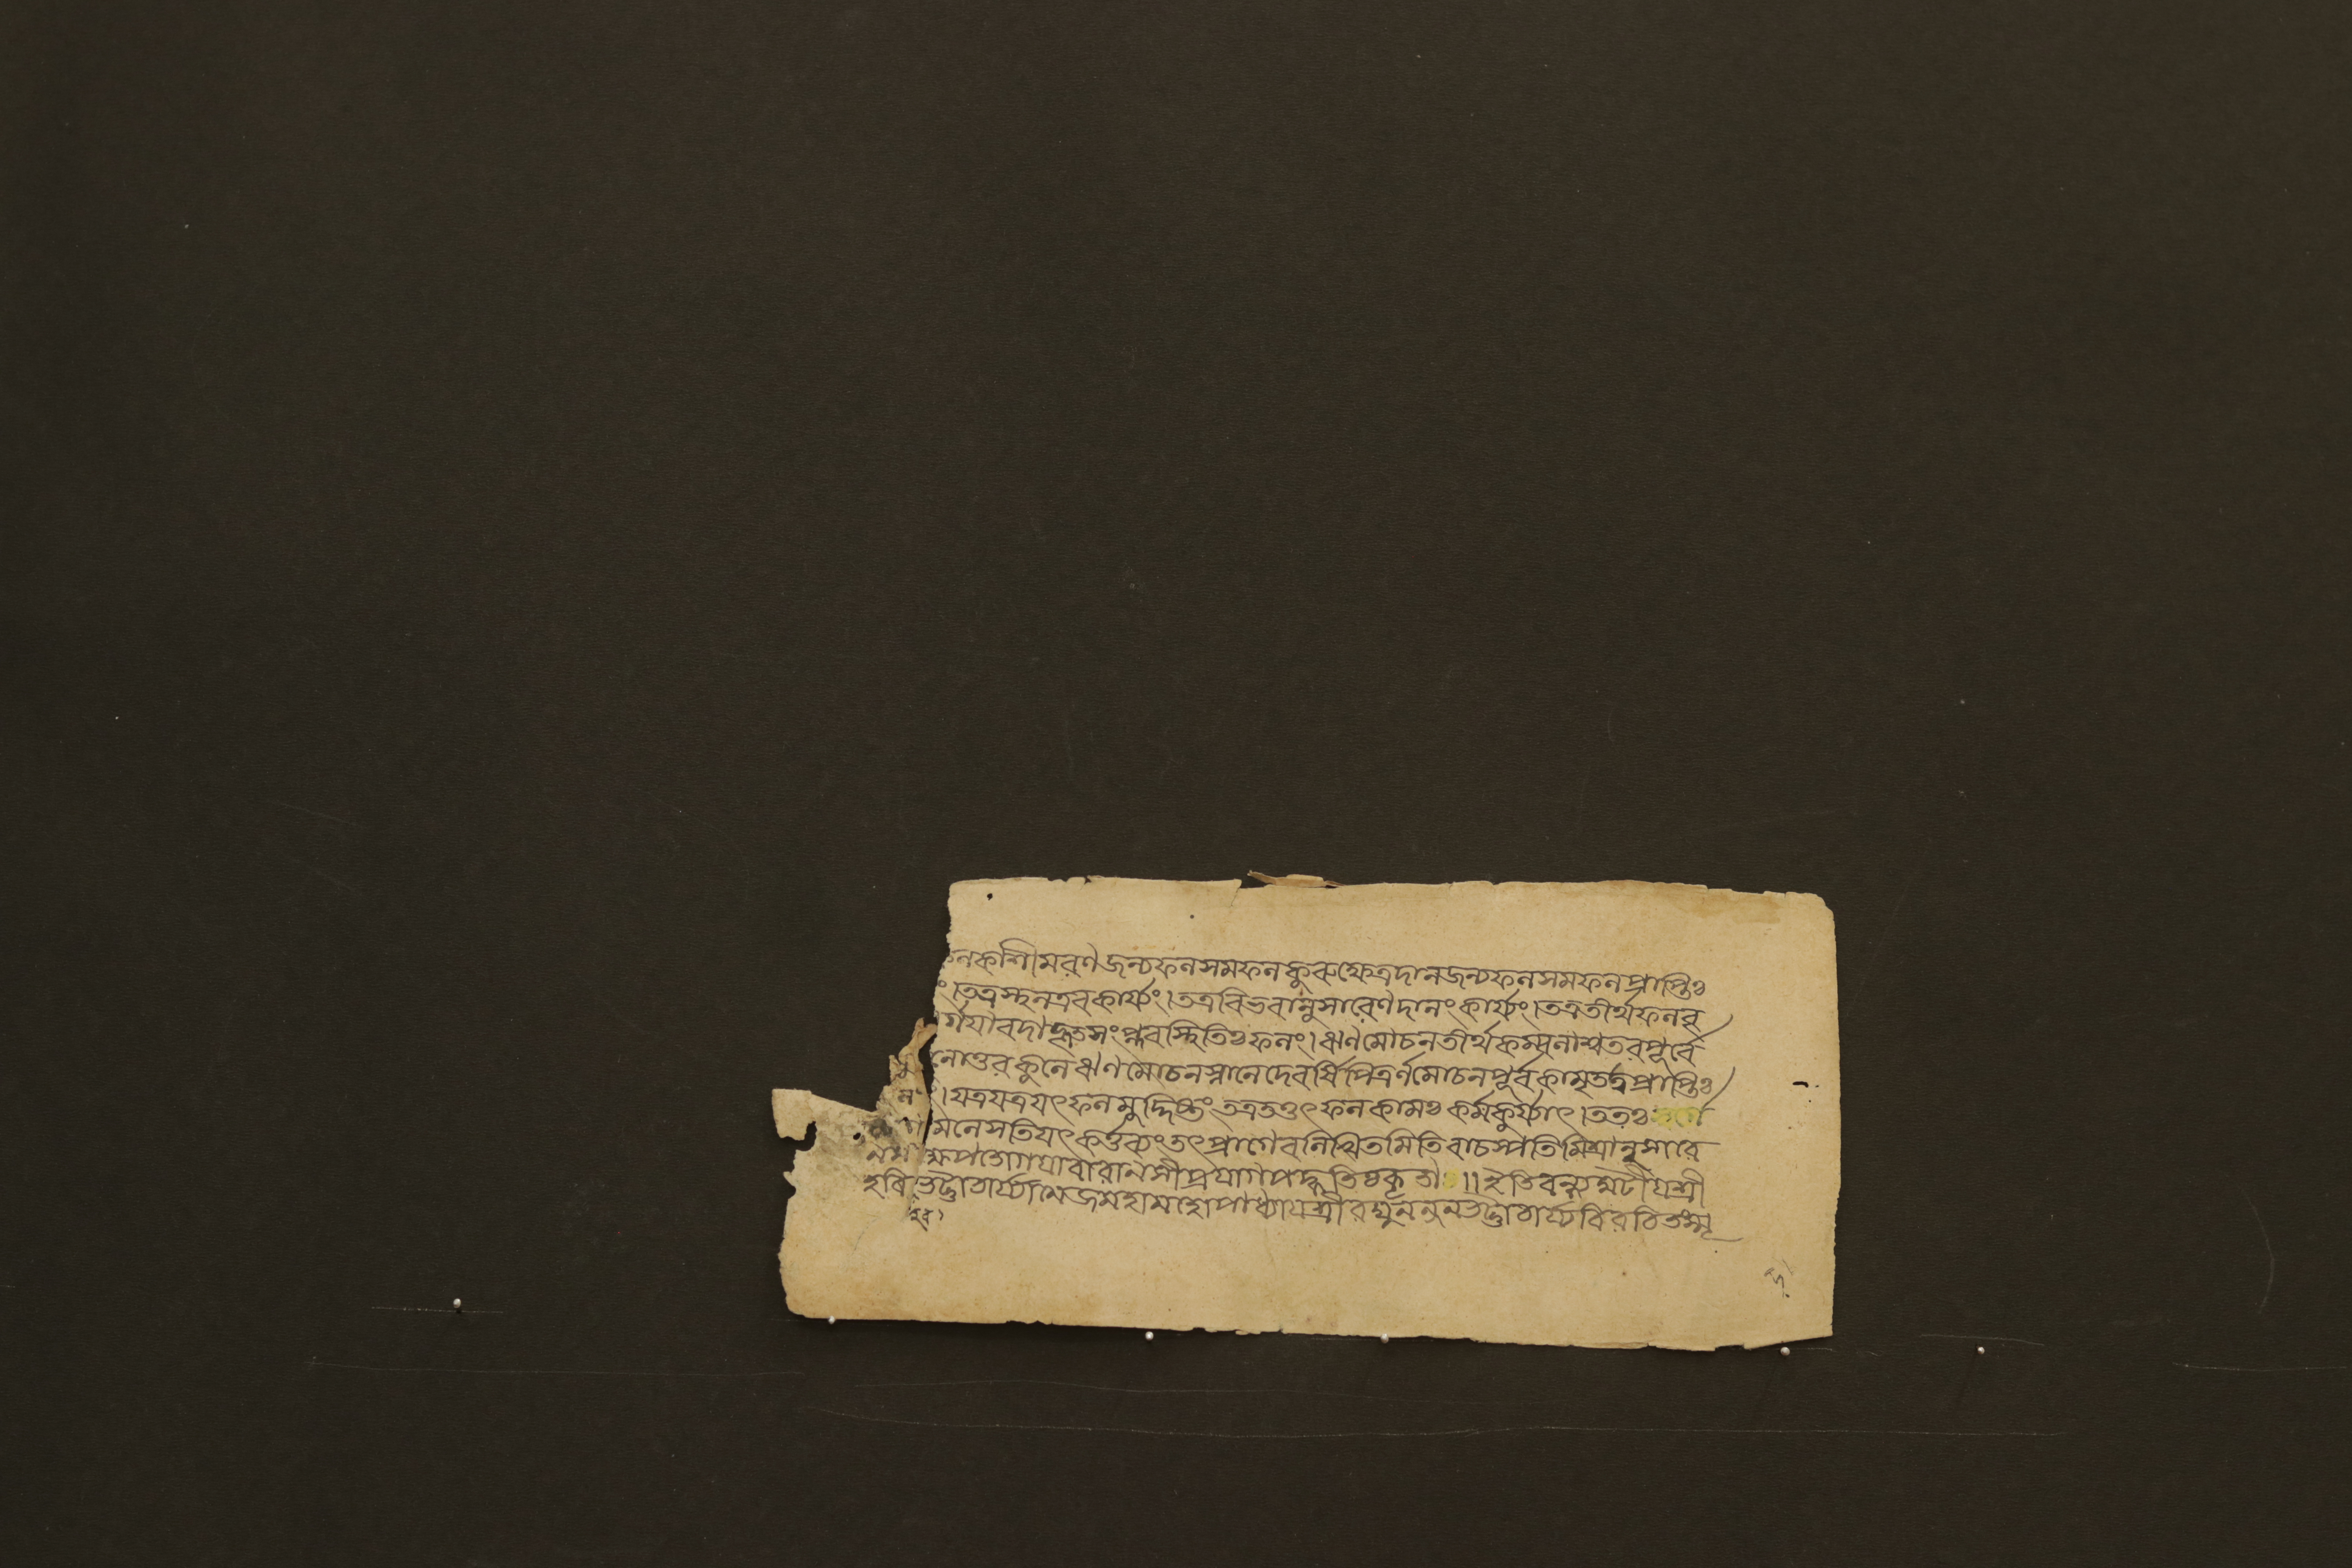 নকাশীমরণজন্যফলসমফলকুরুক্ষেত্রদানজন্যফলসমফলপ্রাপ্তিঃ
ং।তত্রস্নানমত্রবকার্য্যং।তত্রবিভবানুসারেণদানংকার্য্যং।তত্রতীর্থফলব্র
র্গযাবদাহূতসংপ্লবস্থিতিঃফলং।ঋণমোচনতীর্থকম্বলাশ্বতরপূর্বে
লোত্তরকূলেঋণমোচনস্নানেদেবর্ষিপিত্রর্ণমোচনপূর্বকামৃতত্বপ্রাপ্তিঃ
।যত্রযত্রযৎফলমুদ্দিষ্টংতত্রতত্তৎফলকামঃকর্মকুর্য্যাৎ।ততঃ
মনেসতিযৎকর্ত্তব্যংতৎপ্রাগেবলিখিতমিতিবাচস্পতিমিশ্রানুসারে
যাবারানসীপ্রযাগপদ্ধতিঃকৃতা॥ইতিবন্দ্যঘটীযশ্রী
হরিহরভট্টাচার্য্যাত্মজমহামহোপাধ্যাযশ্রীরঘুনন্দনভট্টাচার্য্যবিরচিতস্মৃ